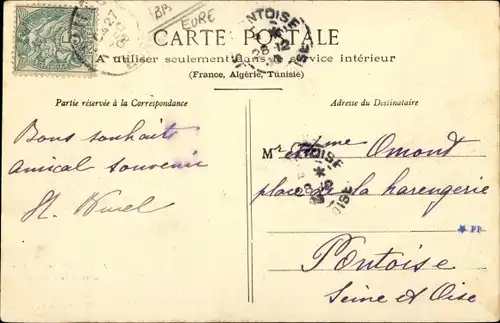 BB
EURE
PONTOISE
CARTE POSTALE
A utiliser seulement dans le service intérieur
(France, Algérie, Tunisie)
Partie réservée à la Correspondance
Adresse du Destinataire
Bons souhaits
amical souvenir
Mr et Mme Omond
place de la harengerie
Pontoise
Seine et Oise
PONTOISE